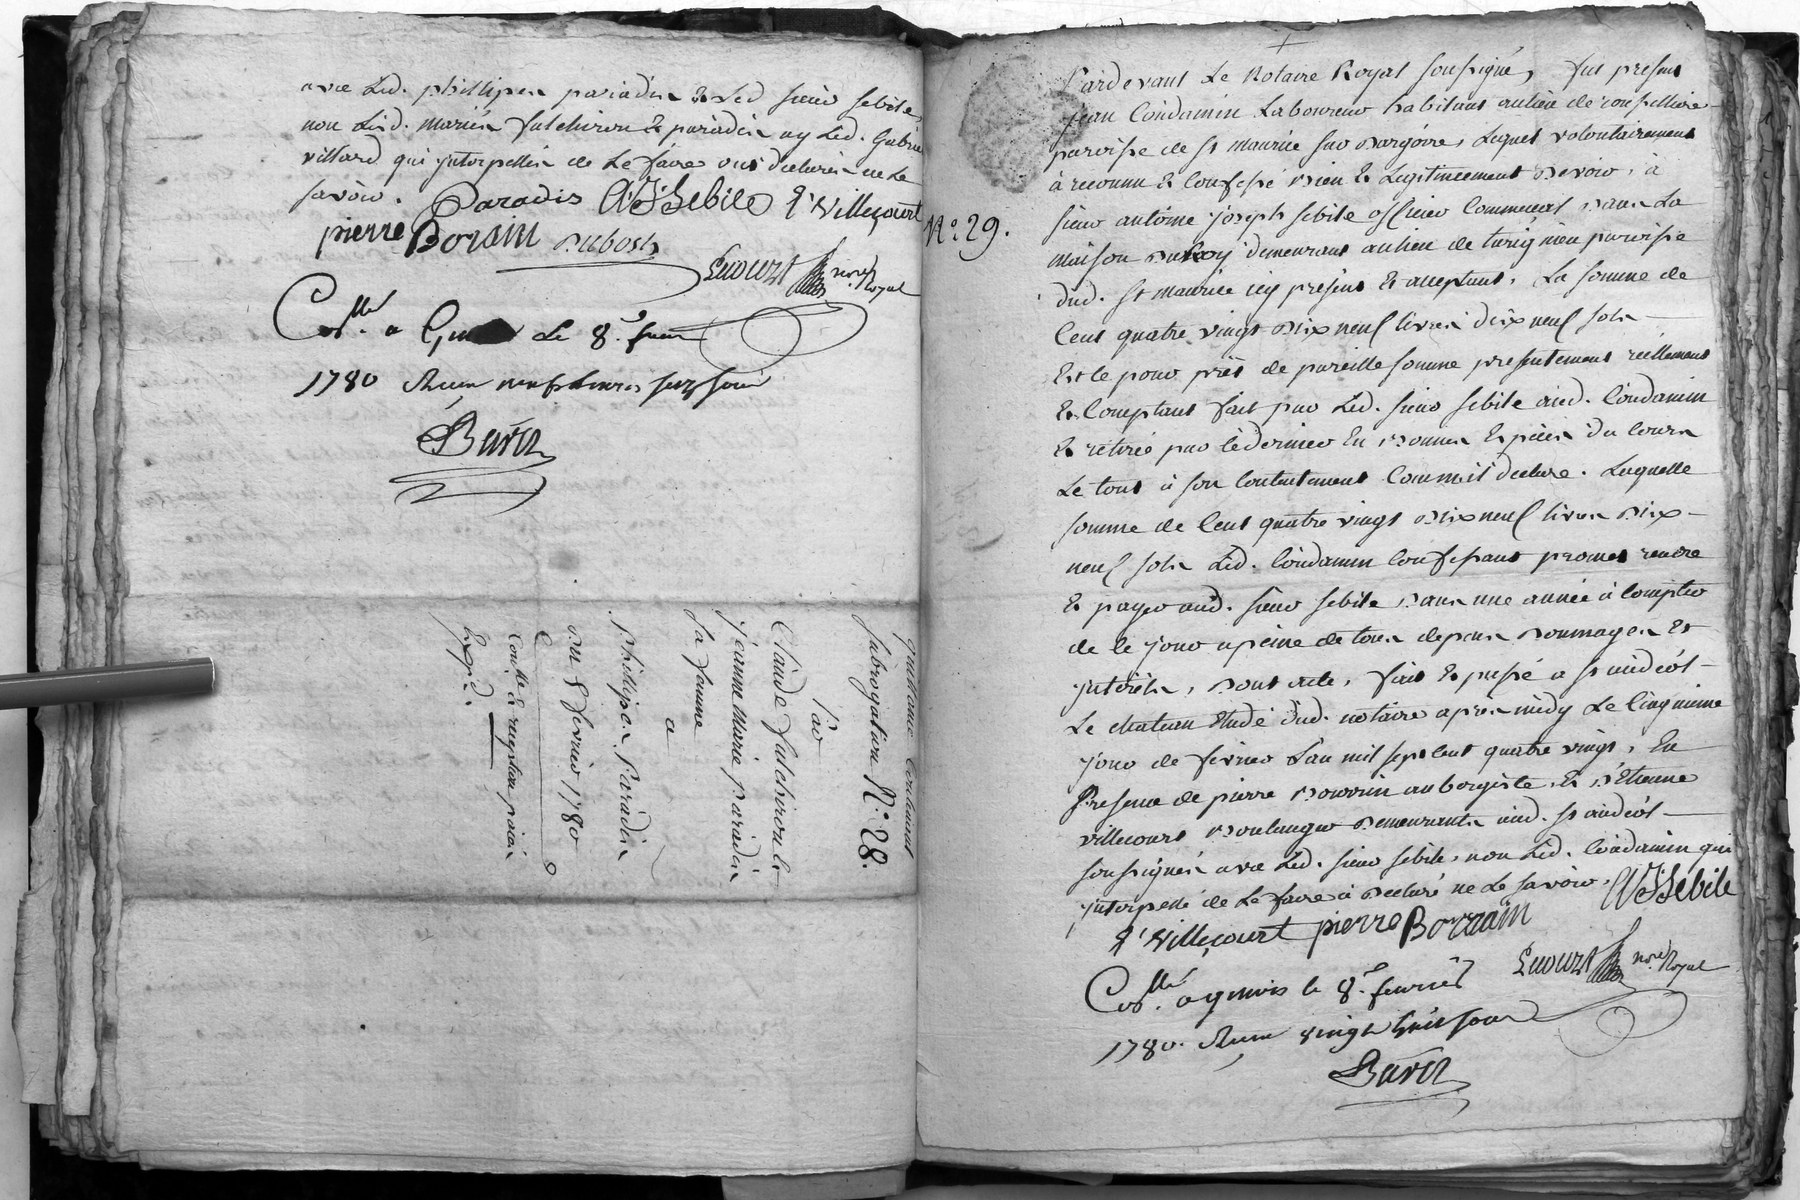 avec Led. phillipes paradis & Led sieur sebile,
non Lesd. mariés fulchiron & paradis ny Led. Gabriel
villard qui jnterpellés de Le faire ont declarés ne Le
savoir. Paradis A J Sebile E. Villecourt
pierre Borain Dubost
Enouzt nore. Royal
Collé. a Le 8. fevrier
1780 Recu neuf Livres seize sous
Barin
quittance contenant
subrogation N.° 28.
Par
Claude fulchiron &
jeanne Marie paradis
sa femme
a
Phillipes Paradis
Du 5 fevrier 1780
Contlle & reception paiés
Expédié.
N.° 29.
Pardevant Le Notaire Royal soussigné, fut present
jean Condamin Laboureur habitant au lieu de
paroisse de St Maurice sur Dargoire, Lequel volontairement
à reconnu & Confessé bien & Legitimement Devoir, à
sieur antoine joseph sebile officier Commençal dans La
maison du Roy demeurant au lieu de paroisse
dud. St Maurice icy présent & acceptant, La somme de
Cent quatre vingt Dix neuf livres dix neuf sols
Et le pour prêt de pareille somme presentement réellement
& Comptant fait par Led. sieur sebile aud. Condamin
& retiré par Le dernier En Bonnes Espèces du Cours
Le tout à son Contentement Comm'il declare. Laquelle
somme de Cent quatre vingt Dix neuf livres Dix
neuf sols Led. Condamin Confessant promet rendre
& payer aud. sieur sebile, Dans une année à Compter
de Ce jour a peine de tous depens Dommages Et
jnterêts, Dont acte, fait & passé a St andéol
Le chateau Etude dud. notaire apres midy Le Cinquieme
jour de fevrier L'an mil sept Cent quatre vingt, En
Presence de pierre Bourrin aubergiste, & D'Etienne
villecourt Boulanger Demeurants aud. St andéol
soussignés avec Led. sieur sebile, non Led. Condamin qui
jnterpellé de Le faire à Déclaré ne Le savoir. A J Sébile
E. Villecourt pierre Borrain
Enouzt nore. Royal
Collé. a givors le 8. fevrier
1780. Recu vingt huit sous
Barin